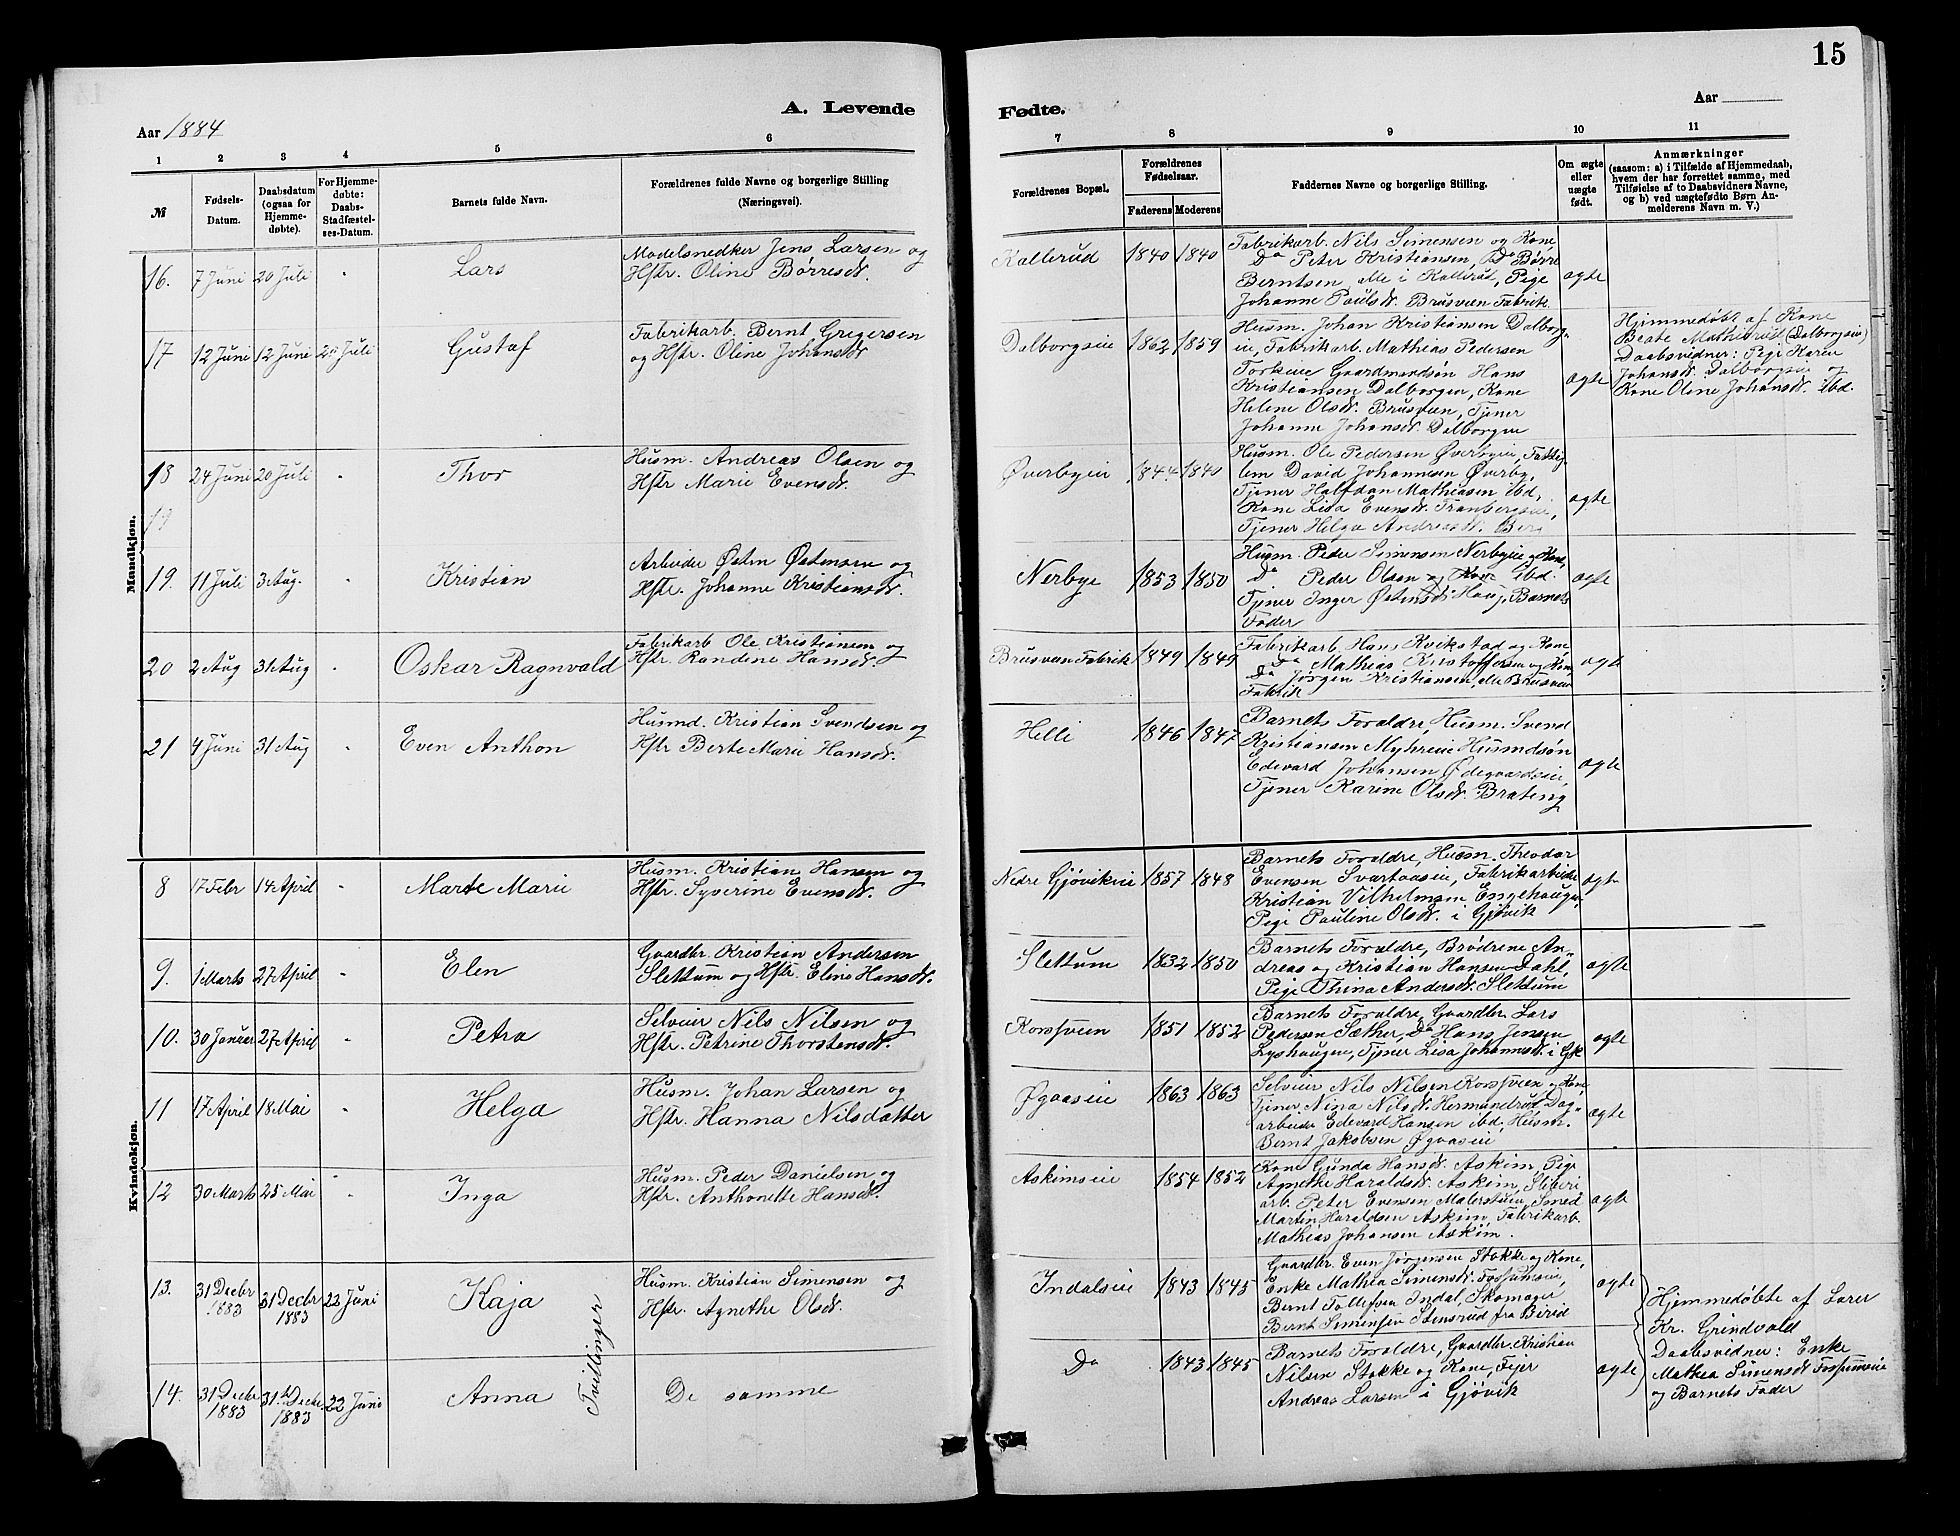 15
A. Levende
Fødte.
Aar 1884
Aar
1
2
3
4
5
6
7
8
9
10
11
№
Fødsels-
Datum.
Daabsdatum
(ogsaa for
Hjemme-
døbte).
For Hjemme-
døbte:
Daabs-
Stadfæstel-
ses-Datum.
Barnets fulde Navn.
Forældrenes fulde Navne og borgerlige Stilling
(Næringsvei).
Forældrenes Bopæl.
Forældrenes
Fødselsaar.
Faderens
Moderens
Faddernes Navne og borgerlige Stilling.
Om ægte
eller
uægte
født.
Anmærkninger
(saasom: a) i Tilfælde af Hjemmedaab,
hvem der har forrettet samme, med
Tilføielse af to Daabsvidners Navne,
og b) ved uægtefødte Børn An-
melderens Navn m. V.)
Mandkjøn.
16. 7 Juni 20 Juli " Lars
Modelsnedker Jens Larsen og
Hstr. Oline Børresdr.
Kallerud 1840 1840
Fabrikarb. Nils Simensen og Kone
Do Peter Kristiansen, Do Børre
Berntsen alle i Kallerud, Pige
Johanne Paulsdr. Brusveen Fabrik.
ægte
17 12 Juni 12 Juni 20 Juli Gustaf
Fabrikarb. Bernt Gregersen
og Hstr. Oline Johansdr
Dalborgseie 1862 1859
Husm. Johan Kristiansen Dalborg-
eie, Fabrikarb. Mathias Pedersen
Gaardmandsøn Hans
Kristiansen Dalborgen, Kone
Helene Olsdr. Brusveen, Tjener
Johanne Johansdr. Dalborgen
ægte
Hjemmedøbt af Kone
Beate Mathidr. (Dalborgseie)
Daabsvidner: Pige Karen
Johansdr. Dalborgseie og
Kone Oline Johansdr. ibd.
18 24 Juni 20 Juli " Thor
Husm. Andreas Olsen og
Hstr Marie Evensdr.
Øverbyeie 1844 1840
Husm. Ole Pedersen Øverbyeie, Fattig-
lem David Johannesen Øverby,
Tjener Halfdan Mathiasen ibd.
Kone Lisa Evensdr. Tranbergseie,
Tjener Helga Andreasdr. Berg
ægte
19
19. 11 Juli 3 Aug. " Kristian
Arbeider Østen Østensen og
Hstr. Johanne Kristiansdr.
Nerbye 1853 1850
Husm. Peder Simensen Nerbyeie og Kone,
Do Peder Olsen og Kone ibd.
Tjener Inger Østensdr. Haug, Barnets
Fader
ægte
20 2 Aug 31 Aug " Oskar Ragnvald
Fabrikarb Ole Kristiansen og
Hstr. Randene Hansdr.
Brusveen Fabrik 1849 1849
Fabrikarb. Hans Kvikstad og Kone,
Do Mathias Kristoffersen og Kone,
Do Jørgen Kristiansen, alle Brusveen
Fabrik
ægte
21 4 Juni 31 Aug " Even Anthon
Husmd. Kristian Svendsen og
Hstr Berte Marie Hansdr.
Helle 1846 1847
Barnets Forældre, Husm. Svend
Kristiansen Myhreeie Husmdsøn
Edevard Johansen Ødegaardseie,
Tjener Karine Olsdr. Brateng
ægte
Kvindekjøn.
8 17 Febr 14 April " Marte Marie
Husm. Kristian Hansen og
Hstr. Syverine Evensdr.
Nedre Gjøvikeie 1857 1848
Barnets Forældre, Husm. Theodor
Evensen Svartaaseie, Fabrikarbeider
Kristian Vilhelmsen Engehaugen,
Pige Pauline Olsdr. i Gjøvik
ægte
9. 1 Marts 27 April " Elen
Gaardbr. Kristian Andersen
Slettum og Hstr. Eline Hansdr.
Slettum 1832 1850
Barnets Forældre, Brødrene An-
dreas og Kristian Hansen Dahl,
Pige Thina Andersdr. Slettum
ægte
10. 30 Januar 27 April " Petra
Selveier Nils Nilsen og
Hstr. Petrine Thorstensdr.
Korsveen 1851 1852
Barnets Forældre, Gaardbr. Lars
Pedersen Sæther, Do Hans Jensen
Lyshaugen, Tjener Lisa Johannesdr. i Gjk
ægte
11 17 April 18 Mai " Helga
Husm. Johan Larsen og
Hstr. Hanna Nilsdatter
Øgaaseie 1863 1863
Selveier Nils Nilsen Korsveen og Kone,
Tjener Nina Nilsdr. Hermandrud, Dag-
arbeider Edevard Hansen ibd, Husm.
Bernt Jakobsen Øgaaseie
ægte
12 30 Marts 25 Mai " Inga
Husm. Peder Danielsen og
Hstr. Anthonette Hansdr.
Askimseie 1854 1852
Kone Gunda Hansdr. Askim, Pige
Agnethe Haraldsdr. Askim, Støberi
arb. Peter Evensen Malerstuen, Smed
Martin Haraldsen Askim, Fabrikarb.
Mathias Johansen Askim.
ægte
13. 31 Decbr 1883 31 Decbr 1883 22 Juni Kaja
Husm. Kristian Simensen og
Hstr. Agnethe Olsdr.
Indalseie 1843 1845
Gaardbr. Even Jørgensen Stokke og Kone,
Enke Mathea Simensdr. Fossumseie,
Bernt Tollefsen Indal, Skomager
Bernt Simensen Stensrud fra Birid
ægte
Tvillinger
Hjemmedøbte af Lærer
Kr. Grindvold
Daabsvidner: Enke
Mathea Simensdr Fossumseie
og Barnets Fader
14. 31 Decbr 1883 31 Decbr. 1883 22 Juni Anna
De samme
Do 1843 1845
Barnets Forældre, Gaardbr. Kristian
Nilsen Stokke og Kone, Feier
Andreas Larsen i Gjøvik
ægte